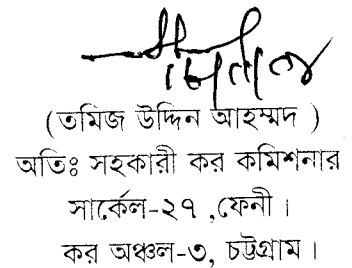 (তমিজ উদ্দিন আহম্মদ )
অতিঃ সহকারী কর কমিশনার
সার্কেল-২৭ ,ফেনী ।
কর অঞ্চল-৩, চট্টগ্রাম ।